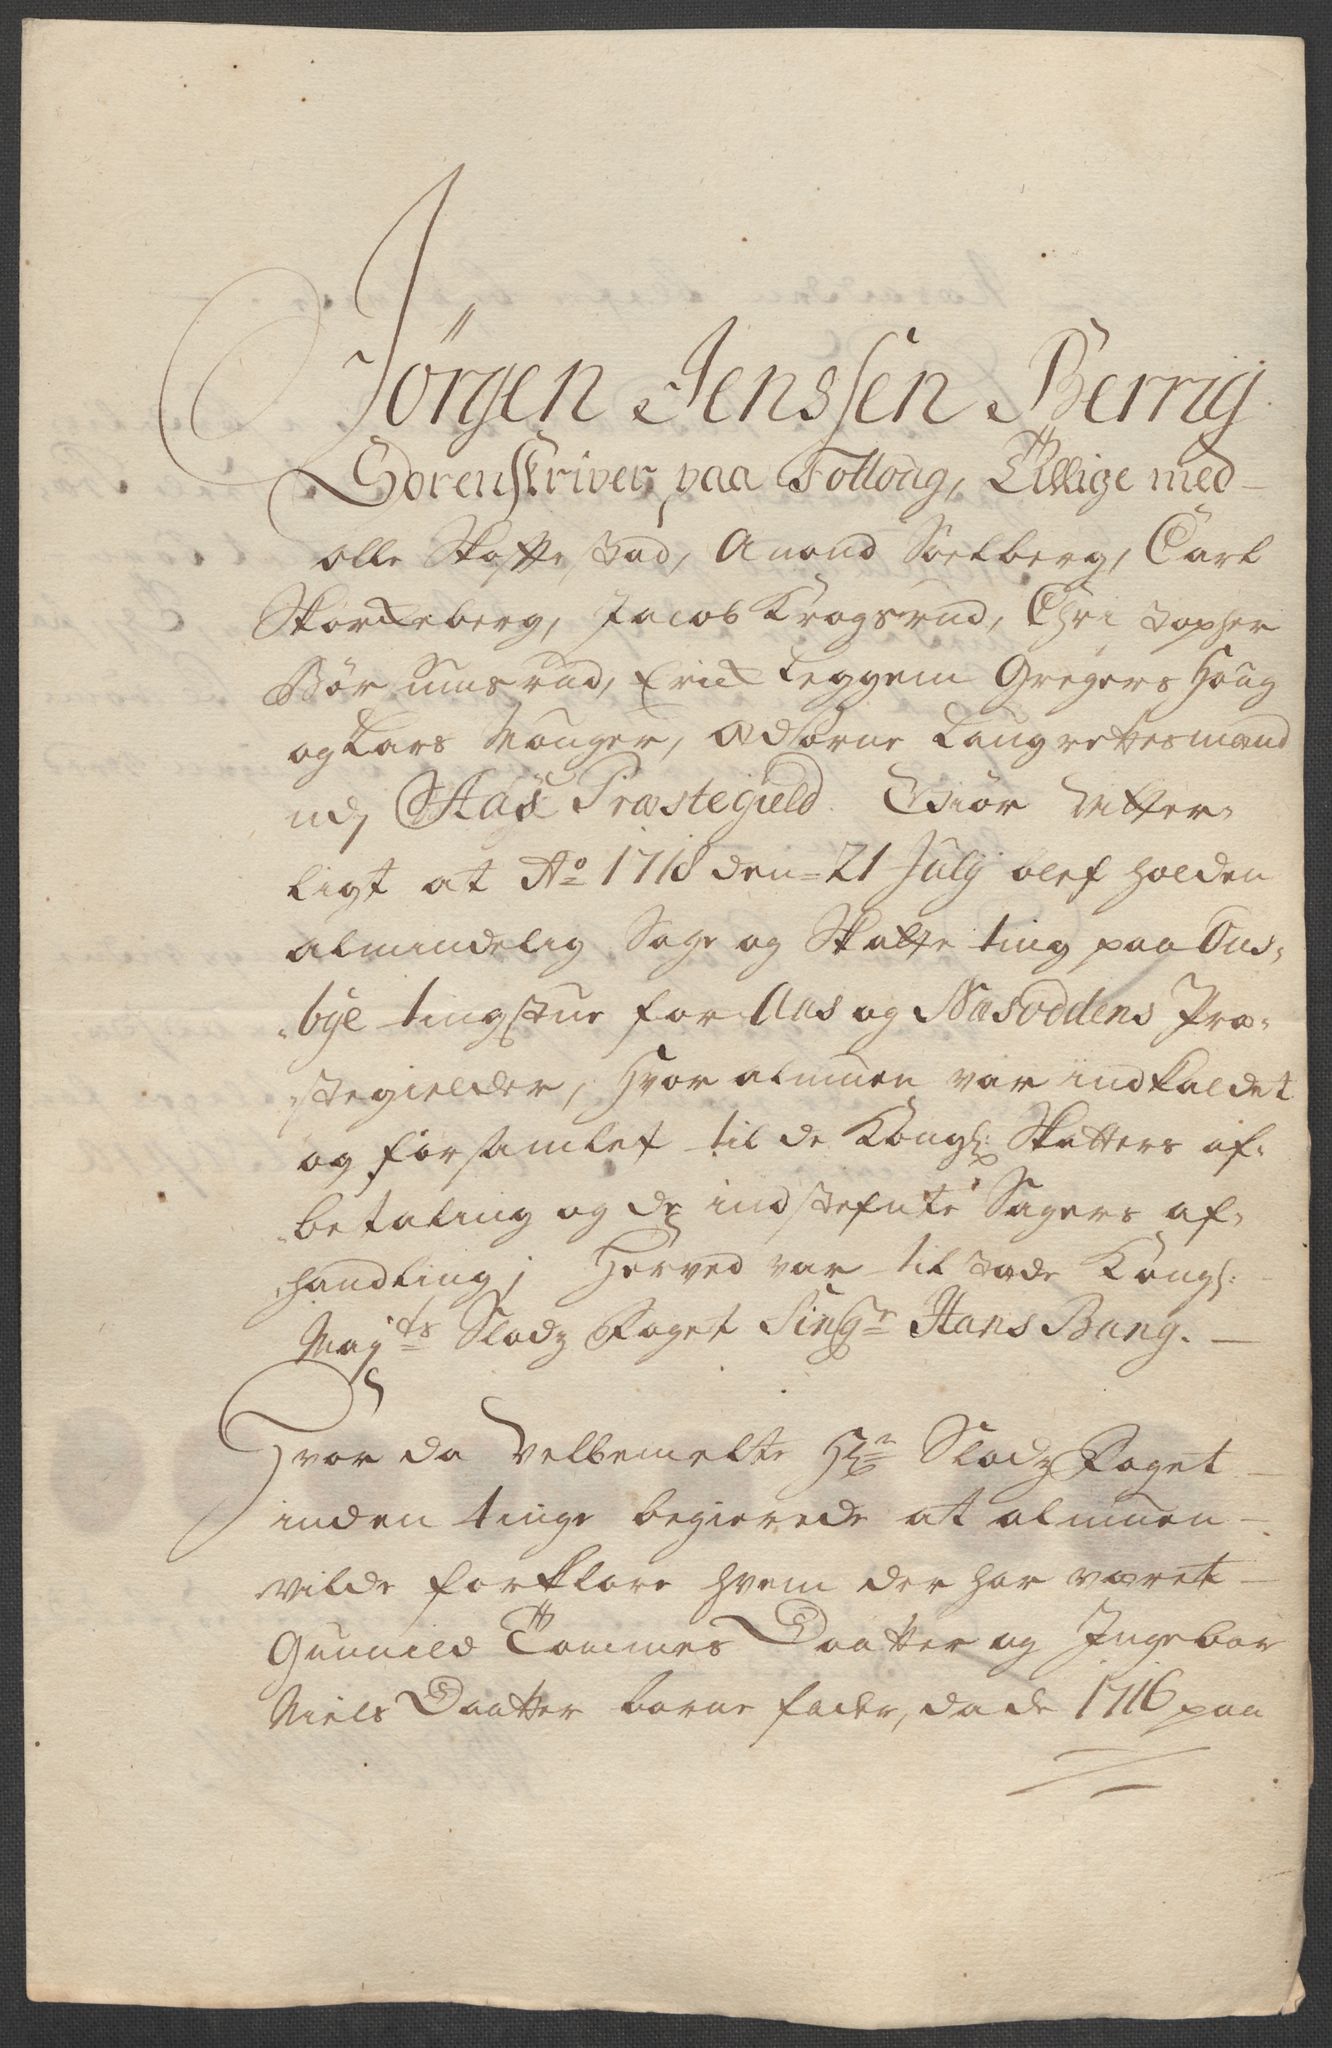 Jörgen Jenssen Berrig
Sorenskriver paa Folloug, Tillige med
Olle Skoftestad, Anond Soelberg, Carl
Skorxeberg, Jacob Krogsrud, Christopher
Börumsrud, Erix Leggem Gregers Houg
og Lars Monger, Edsorne Laugrettesmænd
udj Aas Præstegield. Giör Vitter-
ligt at Ao 1718 den 21 Julj blef holden
almindelig Sage og Skatte ting paa Ous-
bye tingstue for Aas og Næsoddens Præ-
stegielder, Hvor almuen var indkaldet
og forsamlet til de Kongl: Skatters af-
betaling og de indstefnte Sagers af-
handling; Herved var tilstæde Kongl:
Mayts Slodz Foget Singr Hans Bang.
Hvor da Velbemelte Hr Slodz Foget
inden tinge begierede at almuen
vilde forklare hvem der har været
Gunnild Tommes Daatter og Ingebor
Niels Daatter barne fader, da de 1716 paa